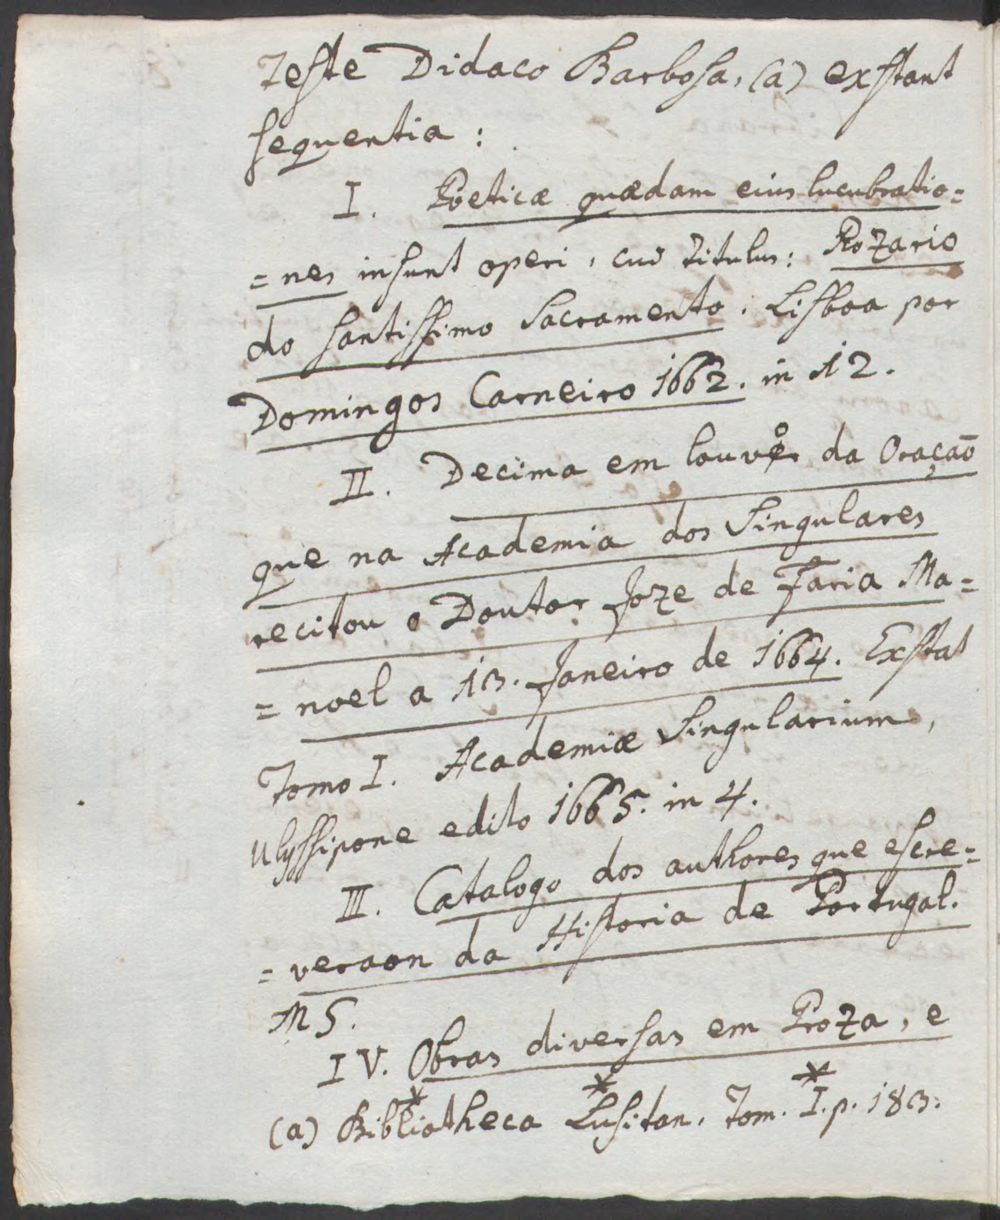 Teste Didaco Barbosa, (a) exstant
sequentia:
I. Poeticæ quædam eius lucubratio=
=nes insunt operi, cui titulus: Rozario
do santissimo Sacramento. Lisboa por
Domingos Carneiro 1662. in 12.
II. Decima em louvor da Oraçaõ
que na Academia dos Singulares
recitou o Doutor Joze de Faria Ma=
=noel a 13. Janeiro de 1664. Exstat
Tomo I. Academiæ Singularium,
Ulyssipone edito 1665. in 4.
III. Catalogo dos authores que escre=
=veraon da Historia de Portugal.
MS.
IV. Obras diversas em Proza, e
* * *
(a) Bibliotheca Lusitan. Tom. I. p. 183.